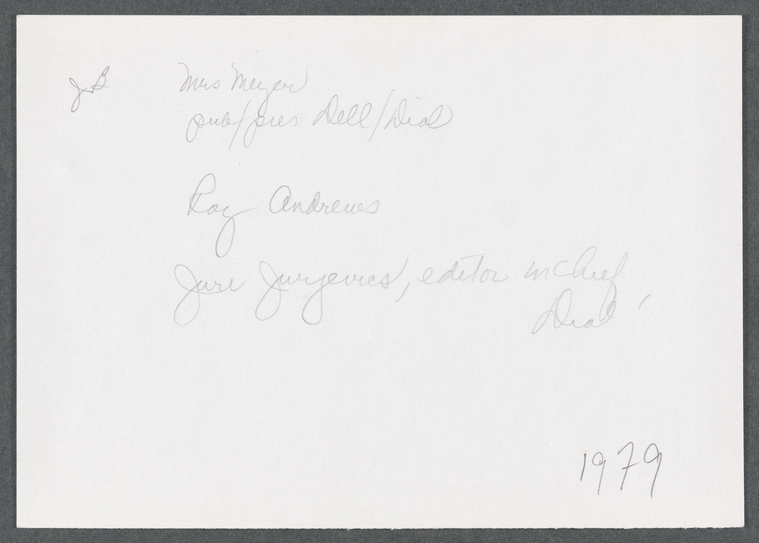 JB Mrs Meyer
pub/pres Dell/Dial
Roy Andrews
Juri Jurjevics, editor in chief,
Dial
1979